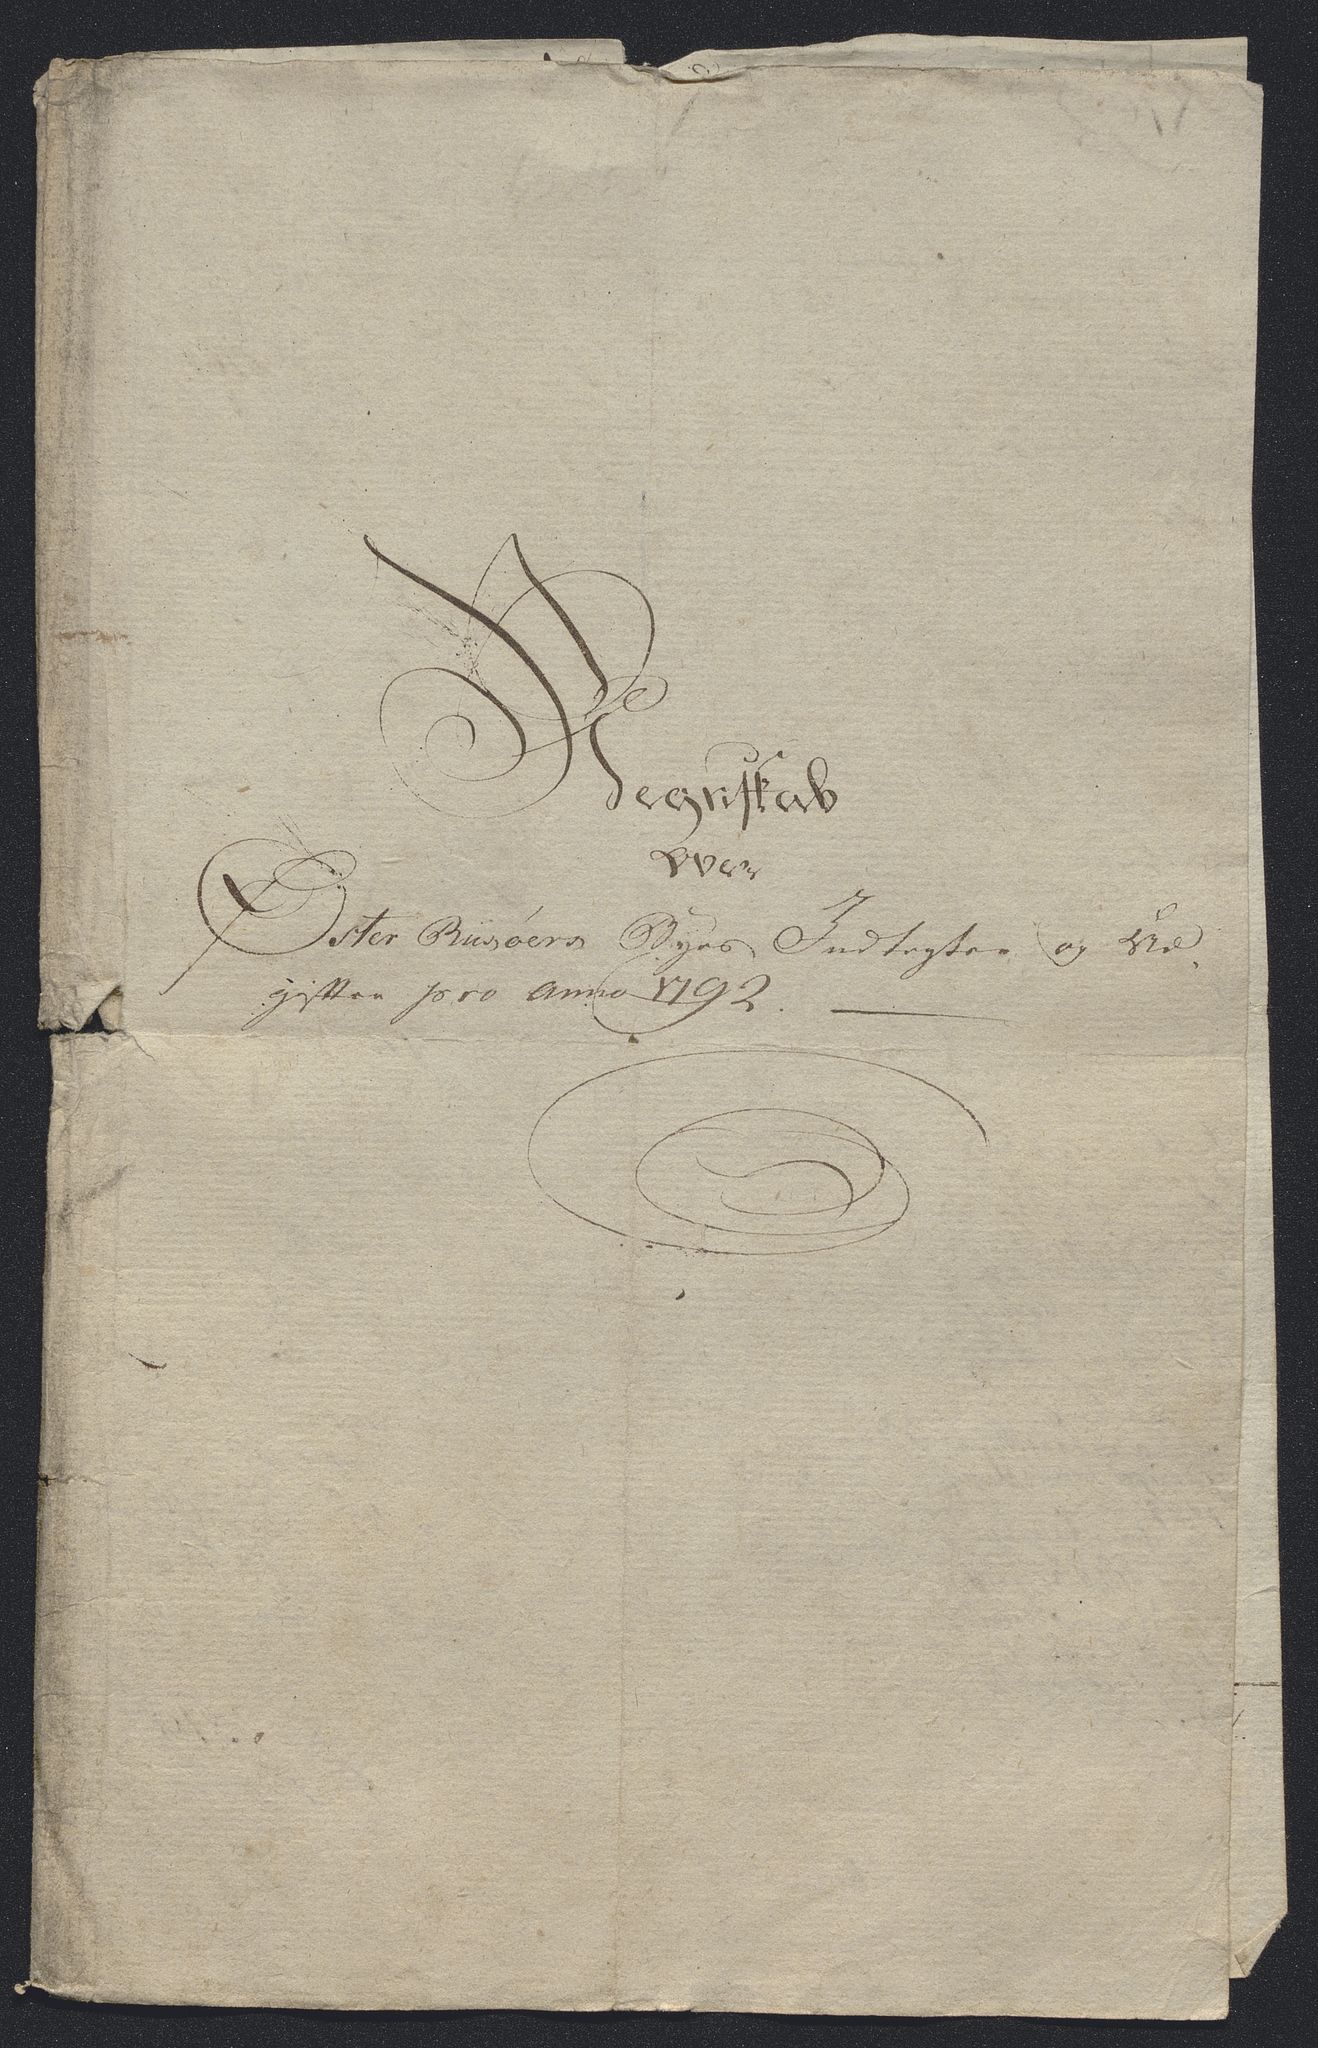 Regnskab
over
Øster Riisöers Byes Indtegter og Ud,
gifter pro anno 1792.